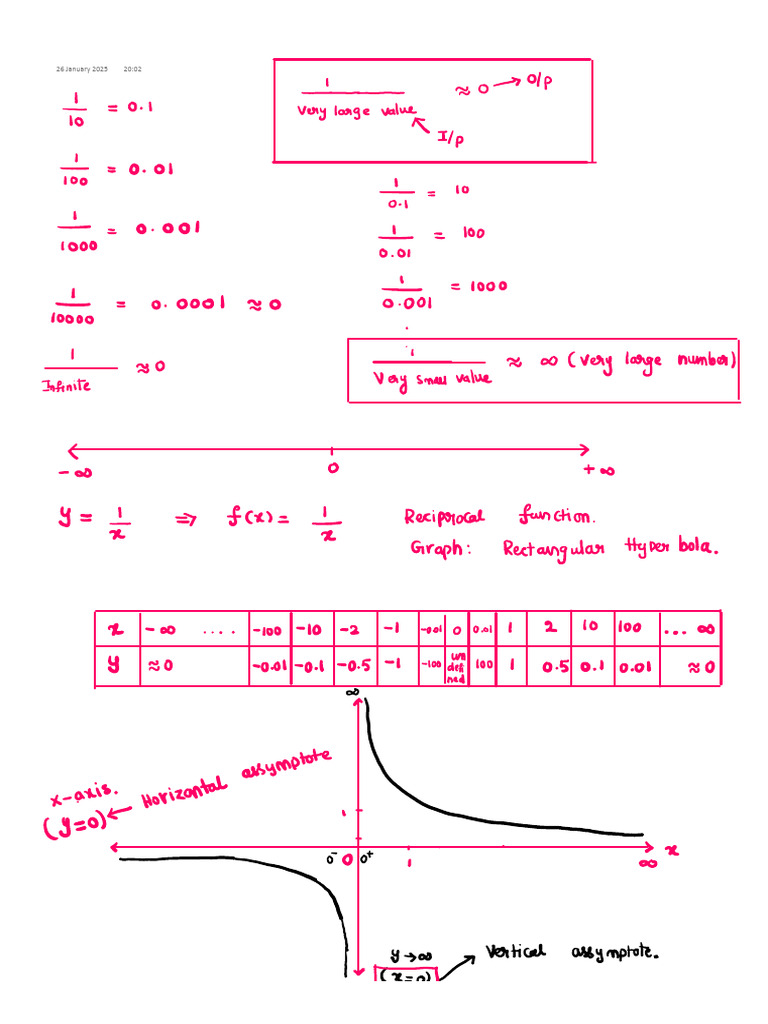 26 January 2025 20:02
1/10 = 0.1
1/100 = 0.01
1/1000 = 0.001
1/10000 = 0.0001 ≈ 0
1/Infinite ≈ 0
1/Very large value ≈ 0 → O/p
I/p
1/0.1 = 10
1/0.01 = 100
1/0.001 = 1000
.
1/Very small value ≈ ∞ (Very large number)
-∞ 0 +∞
y = 1/x ⇒ f(x) = 1/x Reciprocal function.
Graph: Rectangular Hyperbola.
x -∞ .... -100 -10 -2 -1 -0.01 0 0.01 1 2 10 100 ... ∞
y ≈0 -0.01 -0.1 -0.5 -1 -100 undefined 100 1 0.5 0.1 0.01 ≈0
∞
x-axis. ← Horizontal assymptote
(y=0)
1
0⁻ 0 0⁺ 1 ∞ x
y→∞ → Vertical assymptote.
(x=0)